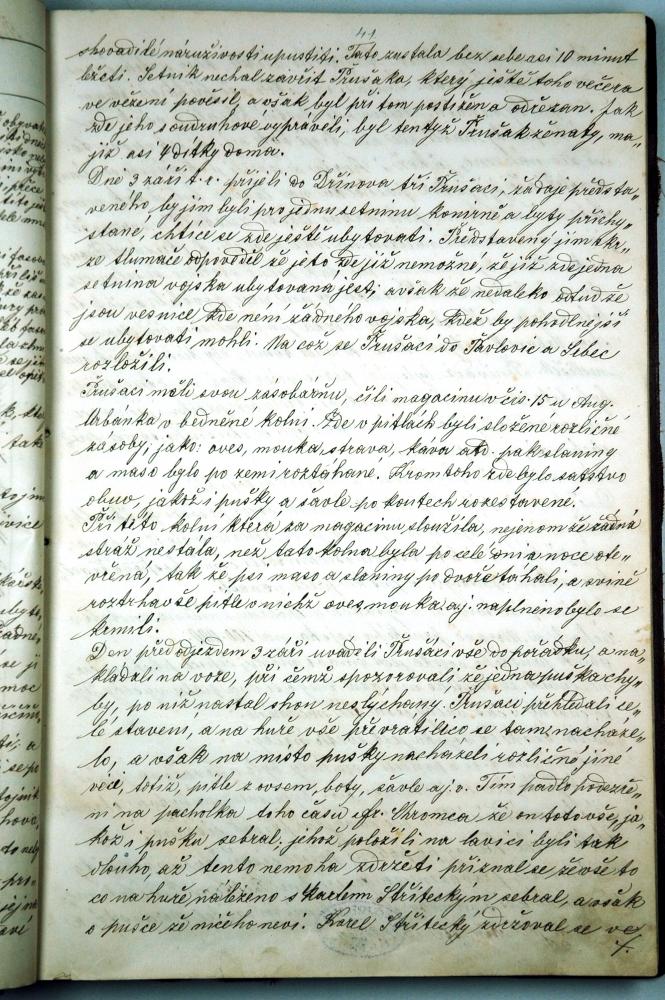 41
chovadilé náruživosti upustiti. Tato zustala bez sebe asi 10 minut
ležeti. Setnik nechal zavřít Prušáka, který ještě toho večera
ve vězení pověsil, a však byl při tom postižen a odřezan. Jak
zde jeho soudruhove vypraveli, byl tentýž Prušak ženatý, ma„
jíž asi 4 dítky doma.
Dne 3 září t. r. přijeli do Držinova tři Prušaci, žádaje předsta„
veného by jim byli pro jednu setninu konirně a byty přichy„
stané, chtice se zde ještě ubytovati. Představený jim skr„
ze tlumače odpověděl že jeto zde již nemožné, že již zde jedna
setnina vojska ubytovana jest; a však že nedaleko odtud že
jsou vesnice kde není žádného vojska, kdež by pohodlnejší
se ubytovati mohli. Na což se Prušaci do Pavlovic a Libec
rozložili.
Prušaci měli svou zásobárňu, čili magacinu v čís. 15 u Aug.
Urbánka v bedněné kolni. Zde v pitlách byli složene rozličné
zásoby, jako: oves, mouka, strava, káva atd. pak slaniny
a maso bylo po zemi roztáhané. Krom toho zde bylo šatstvo
obuv, jakož i pušky a šavle po koutech rozestavené.
Při této kolni která za magacinu sloužila, nejenom že žádná
stráž nestála, než tato kolna byla po celé dni a noce ote„
vřená, tak že psi maso a slaniny po dvoře táhali, a svině
roztrhavše pitle v nichž oves, mouka aj. naplneno bylo se
krmili.
Den před odjezdem 3 září uváděli Prušáci vše do pořádku, a na„
kládali na voze, při čemž spozorovali že jedna puška chy„
by, po níž nastal shon neslýchaný. Prusaci přehledali ce„
lé stavení, a na huře vše převrátili co se tam nacháze„
lo, a však na místo pušky nacházeli rozličné jiné
věci, totiž, pitle z ovsem, boty, šavle aj. v. Tím padlo podezře„
ni na pacholka toho času Fr. Chromca že on toto vše, ja„
kož i puška sebral. jehož položili na lavici byli tak
dlouho, až tento nemoha zdržeti přiznal se, že vše to
co na huře naleženo s Karlem Stříteckým sebral, a však
o pušce že ničeho neví. Karel Střítecký zdržoval se ve
./.